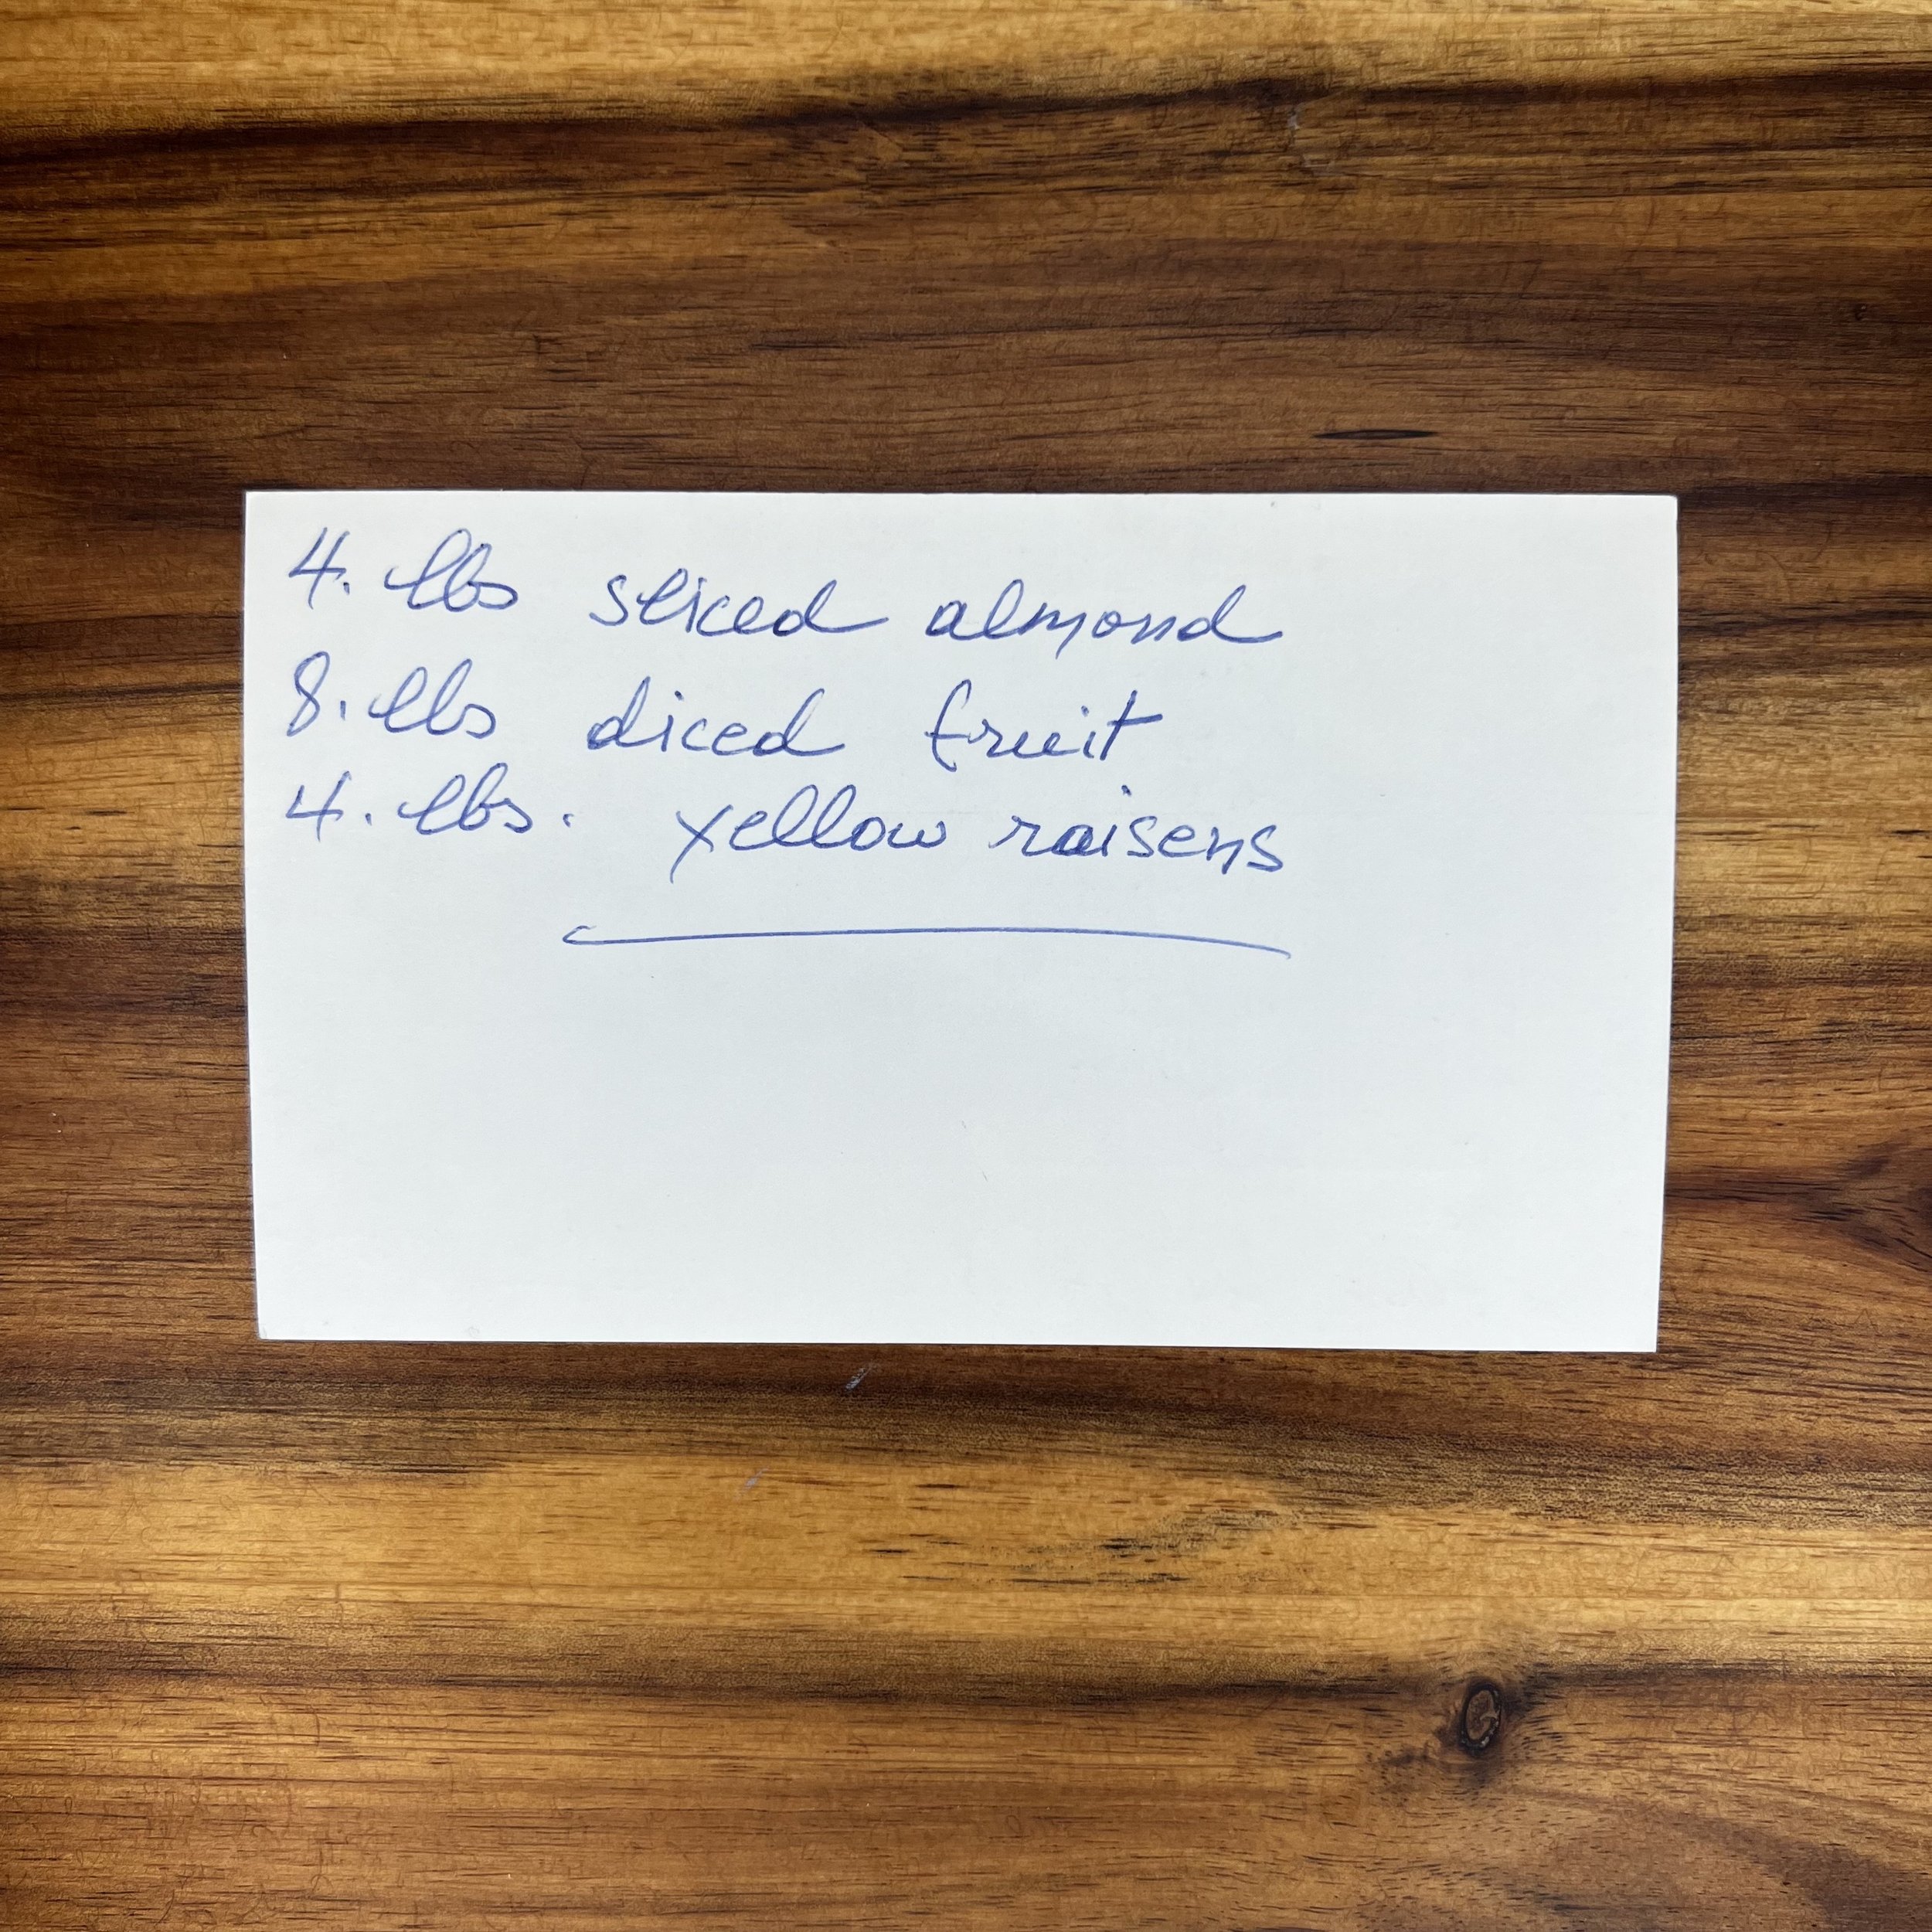 4. lbs sliced almond
8. lbs diced fruit
4. lbs. yellow raisens